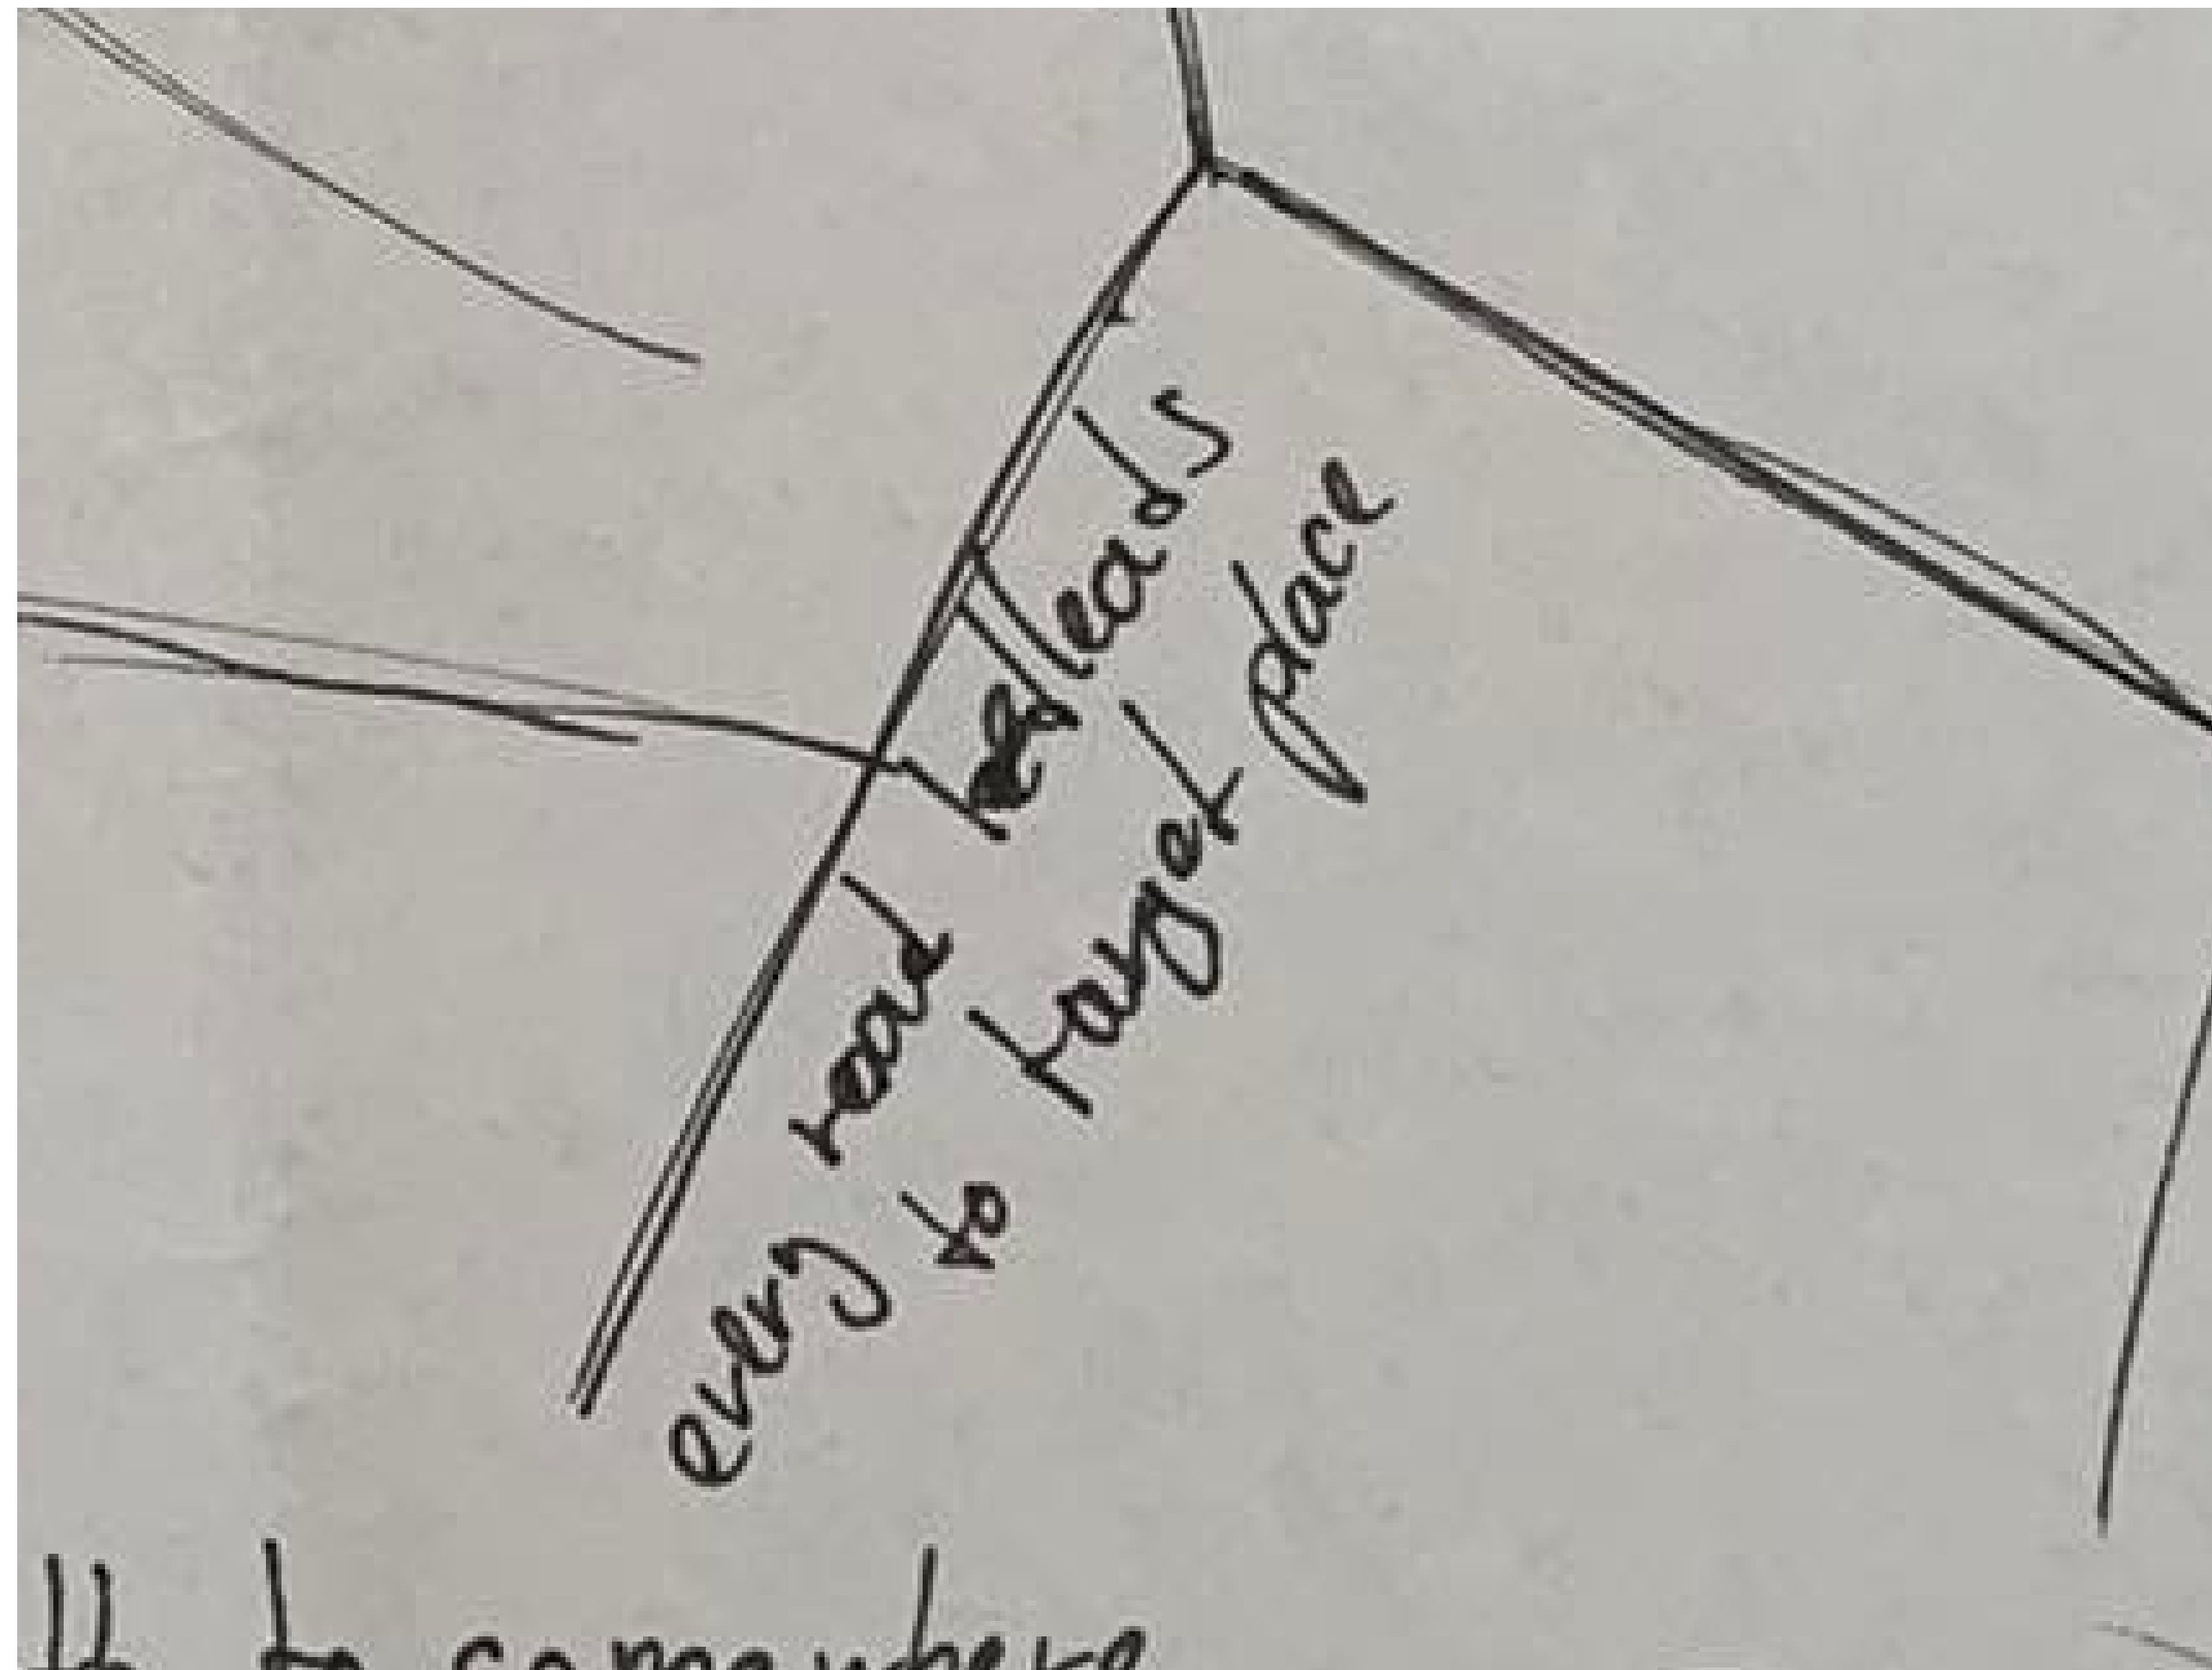 every road leads
to target place
to somewhere